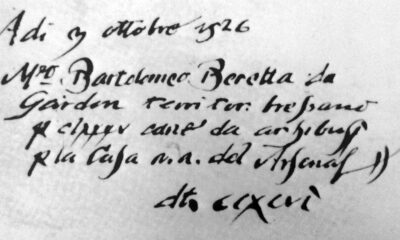 Adi 3 ottobre 1526
Mro. Bartolomeo Beretta da
Gardon territor. bressano
p clxxxv cane da archibusi
p la Casa n.a. del Arsenal
dt. ccxcvi